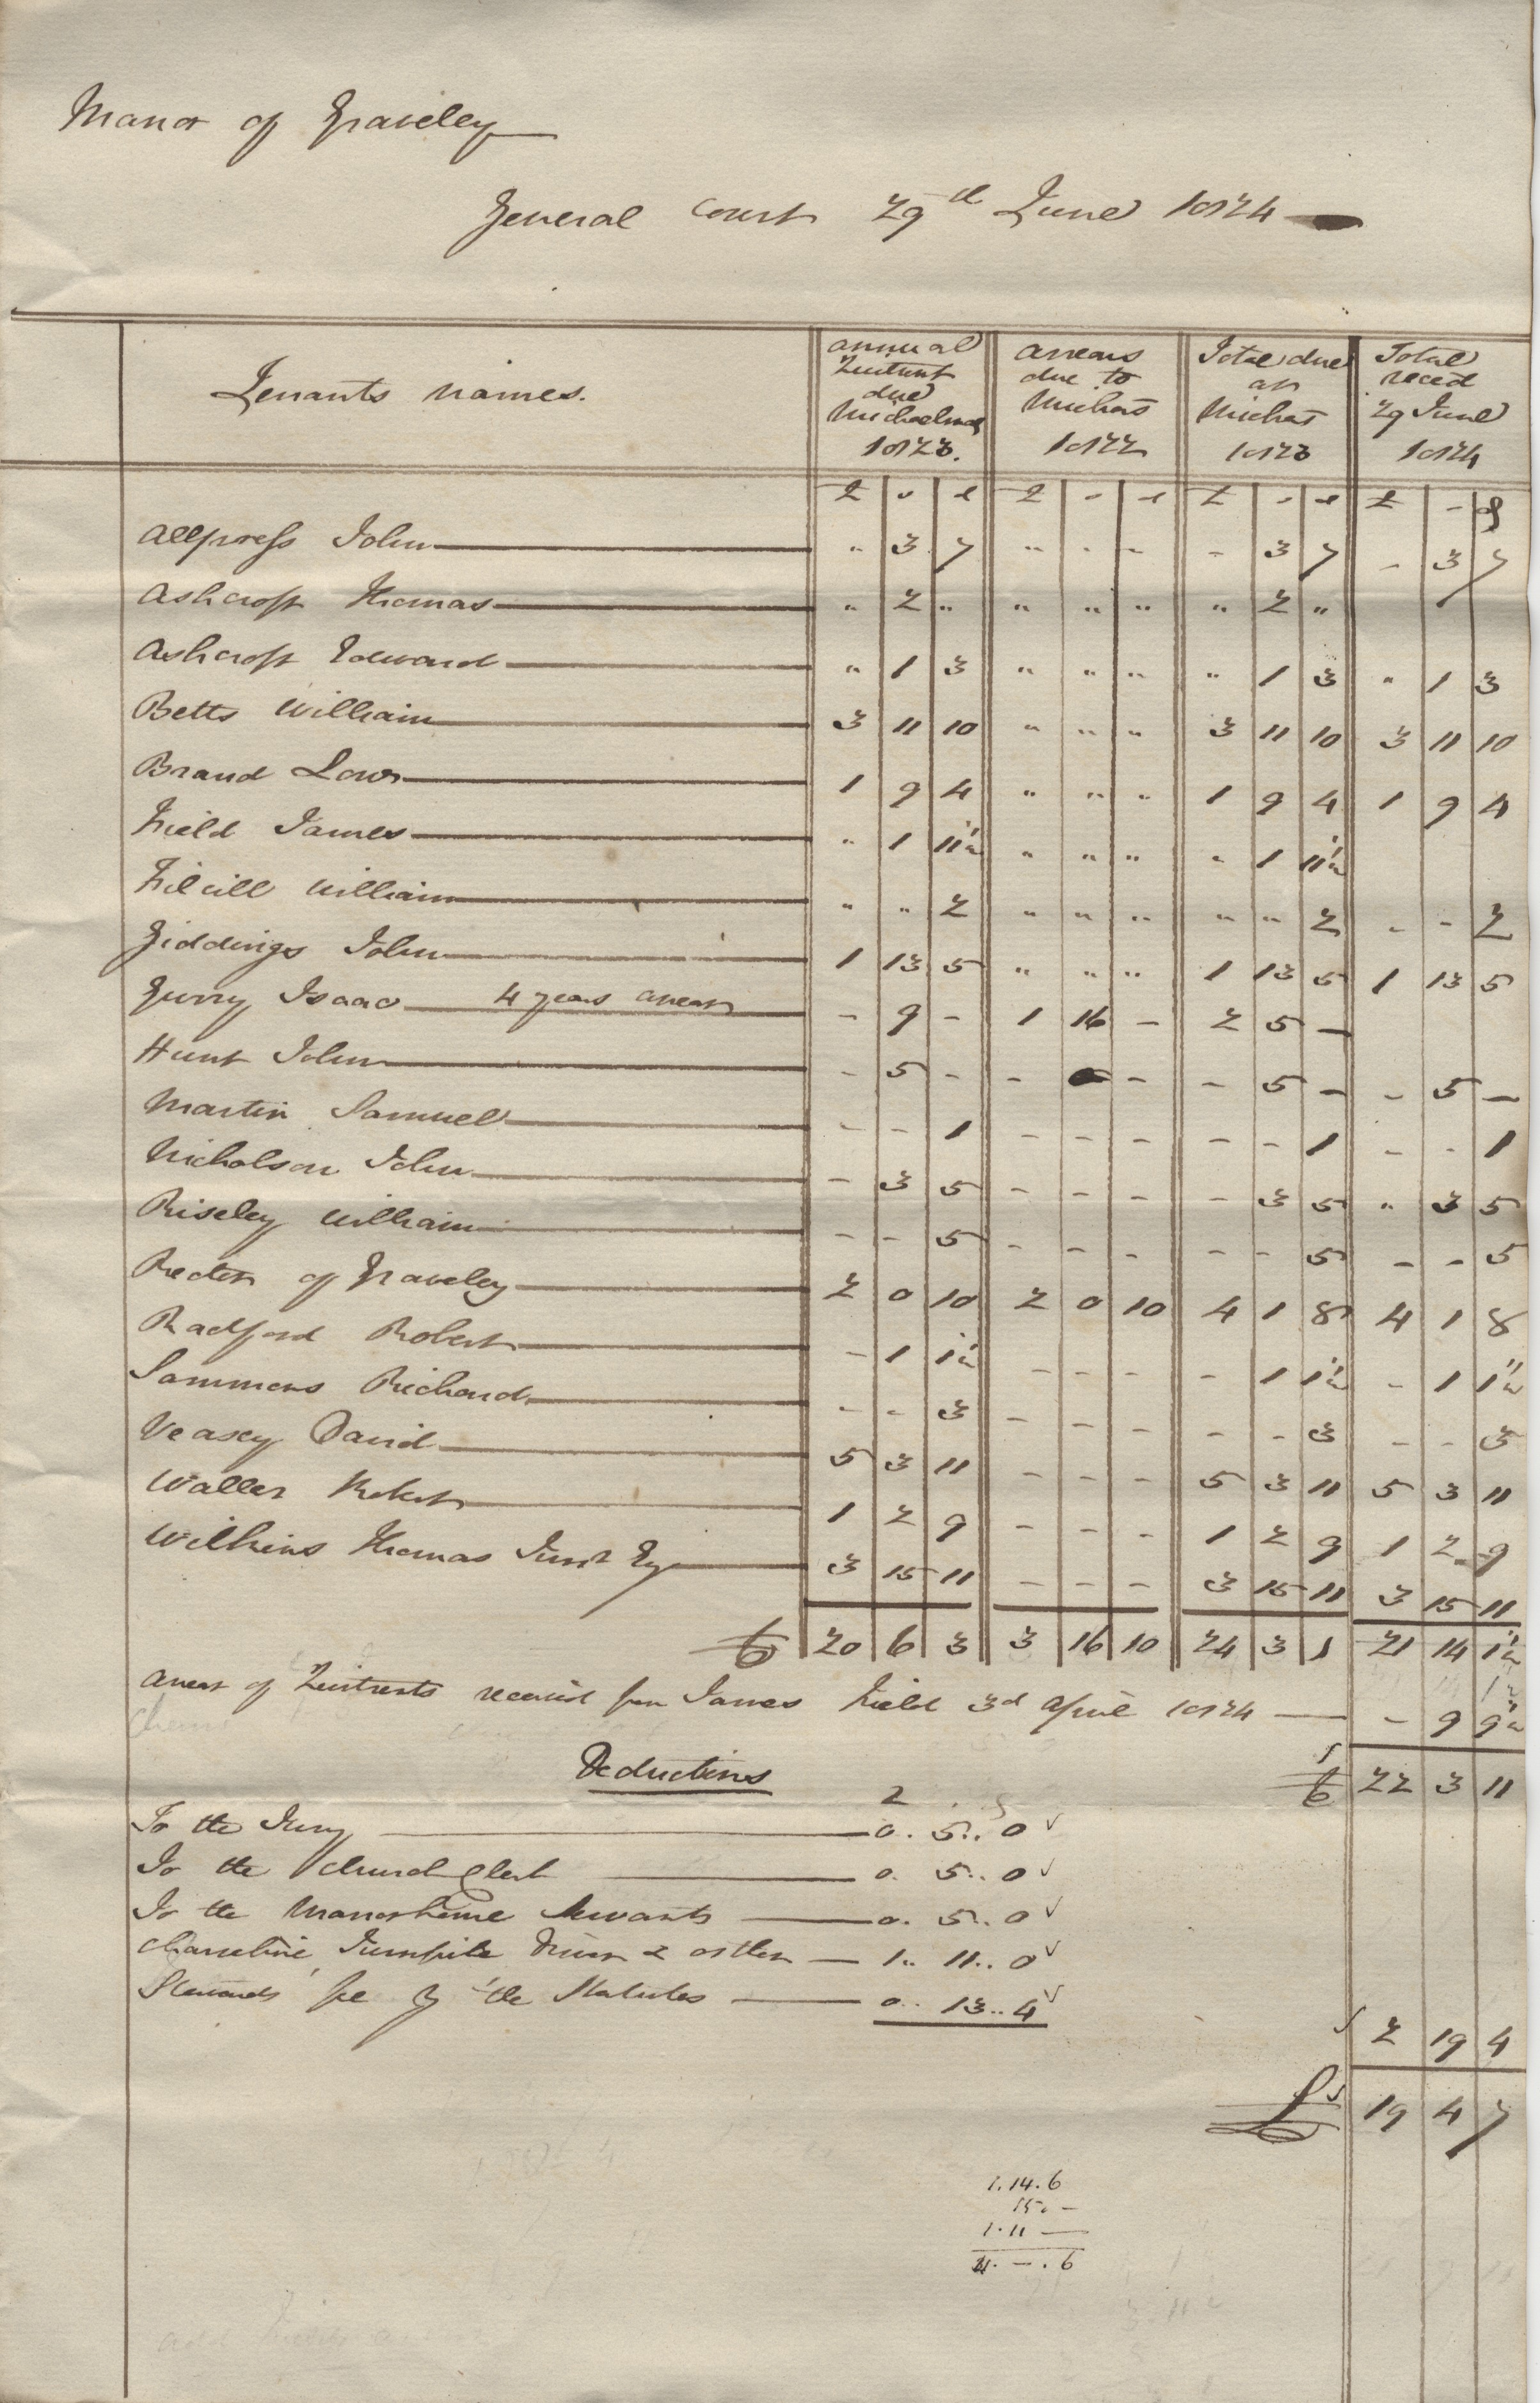 Manor of Graveley
General Court 29th June 1824
Tenants Names.
annual Quitrent due Michaelmas 1823.
arrears due to Michas 1822
Total due at Michas 1823
Total reced 29 June 1824
£ s d £ s d £ s d £ s d
Allpress John " 3 7 " " " - 3 7 - 3 7
Ashcroft Thomas " 2 " " " " " 2 "
Ashcroft Edward " 1 3 " " " " 1 3 " 1 3
Betts William 3 11 10 " " " 3 11 10 3 11 10
Brand 1 9 4 " " " 1 9 4 1 9 4
Field James " 1 11½ " " " - 1 11½
William " " 2 " " " " " 2 - - 2
Giddings John 1 13 5 " " " 1 13 5 1 13 5
Gurry Isaac 4 years arrears - 9 - 1 16 - 2 5 -
Hunt John - 5 - - - - 5 - - 5 -
Martin Samuel - - 1 - - - - - 1 - - 1
Nicholson John - 3 5 - - - - 3 5 " 3 5
Riseley William - - 5 - - - - - 5 - - 5
Rector of Graveley 2 0 10 2 0 10 4 1 8 4 1 8
Radford Robert - 1 1½ - - - - 1 1½ - 1 1½
Sammons Richard - - 3 - - - - - 3 - - 3
Veasey David 5 3 11 - - - 5 3 11 5 3 11
Waller Robert 1 2 9 - - - 1 2 9 1 2 9
Wilkins Thomas Junr Esq 3 15 11 - - - 3 15 11 3 15 11
£ 20 6 3 3 16 10 24 3 1 21 14 1½
Arrear of Quitrents received from James Field 3d April 1824 - 9 9½
£ 22 3 11
Deductions
£ s d
To the Jury 0. 5.. 0
To the Church Clerk 0. 5.. 0
To the Manorhouse Servants 0. 5.. 0
Turnpike & ostler 1.. 11.. 0
Stewards fee by the Statutes 0.. 13.. 4
2 19 4
£ 19 4 7
1.14.6
15.-
1.11 -
4. - . 6